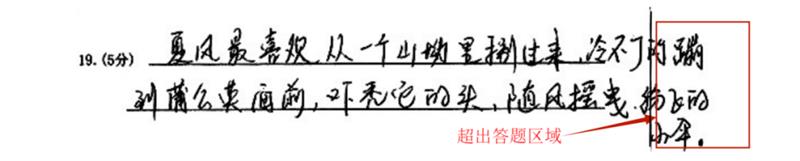 19.(5分) 夏风最喜欢从一个山坳里捌过来,冷不丁的蹦
到蒲公英面前,吓秃它的头,随风摇曳.纷飞的
小伞。
超出答题区域